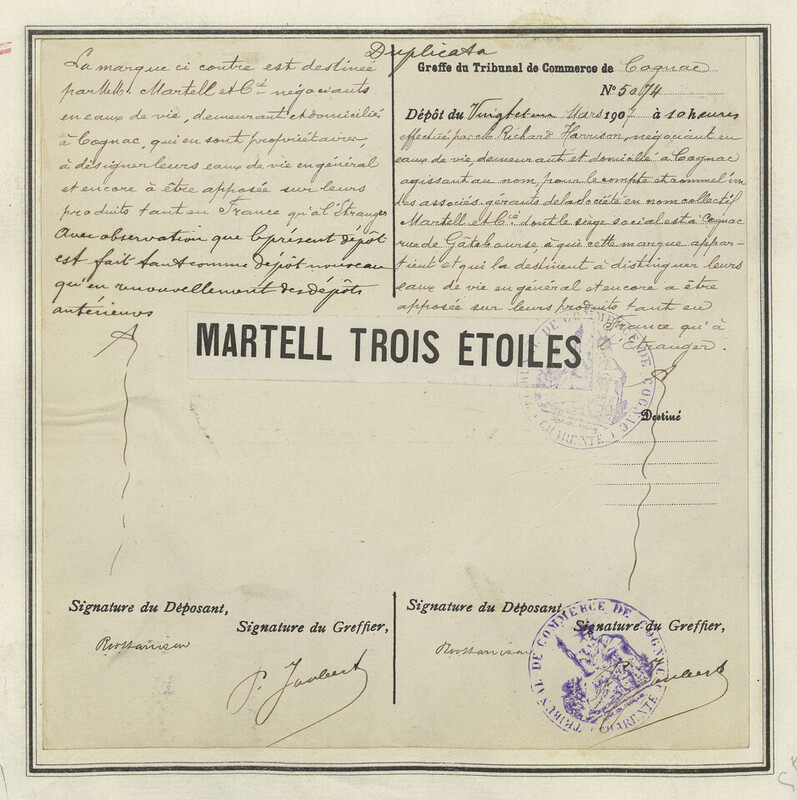 Duplicata
La marque ci contre est destinée
par M.M. Martell et Cie négociants
en eaux de vie, demeurant et domiciliés
à Cognac, qui en sont propriétaires,
à désigner leurs eaux de vie en général
et encore à être apposée sur leurs
produits tant en France qu'à l'Etranger
Avec observation que le présent dépôt
est fait tant comme dépôt nouveau
qu'en renouvellement des dépôts
antérieurs
Greffe du Tribunal de Commerce de Cognac
No 5074
Dépôt du Vingt et un Mars 1907 à 10 heures
effectué par Richard Harrison, négociant en
eaux de vie, demeurant et domicilié à Cognac
agissant au nom, pour le compte et comme l'un
des associés gérants de la Société en nom collectif
Martell et Cie dont le siège social est à Cognac
rue de Gâtebourse à qui cette marque appar-
tient et qui la destinent à distinguer leurs
eaux de vie en général et encore a être
apposée sur leurs produits tant en
France qu'à
l'Etranger.
MARTELL TROIS ÉTOILES
TRIBUNAL DE COMMERCE DE COGNAC
CHARENTE
Destiné
Signature du Déposant,
Signature du Greffier,
P. Joubert
Signature du Déposant,
Signature du Greffier,
P. Joubert
TRIBUNAL DE COMMERCE DE COGNAC
CHARENTE